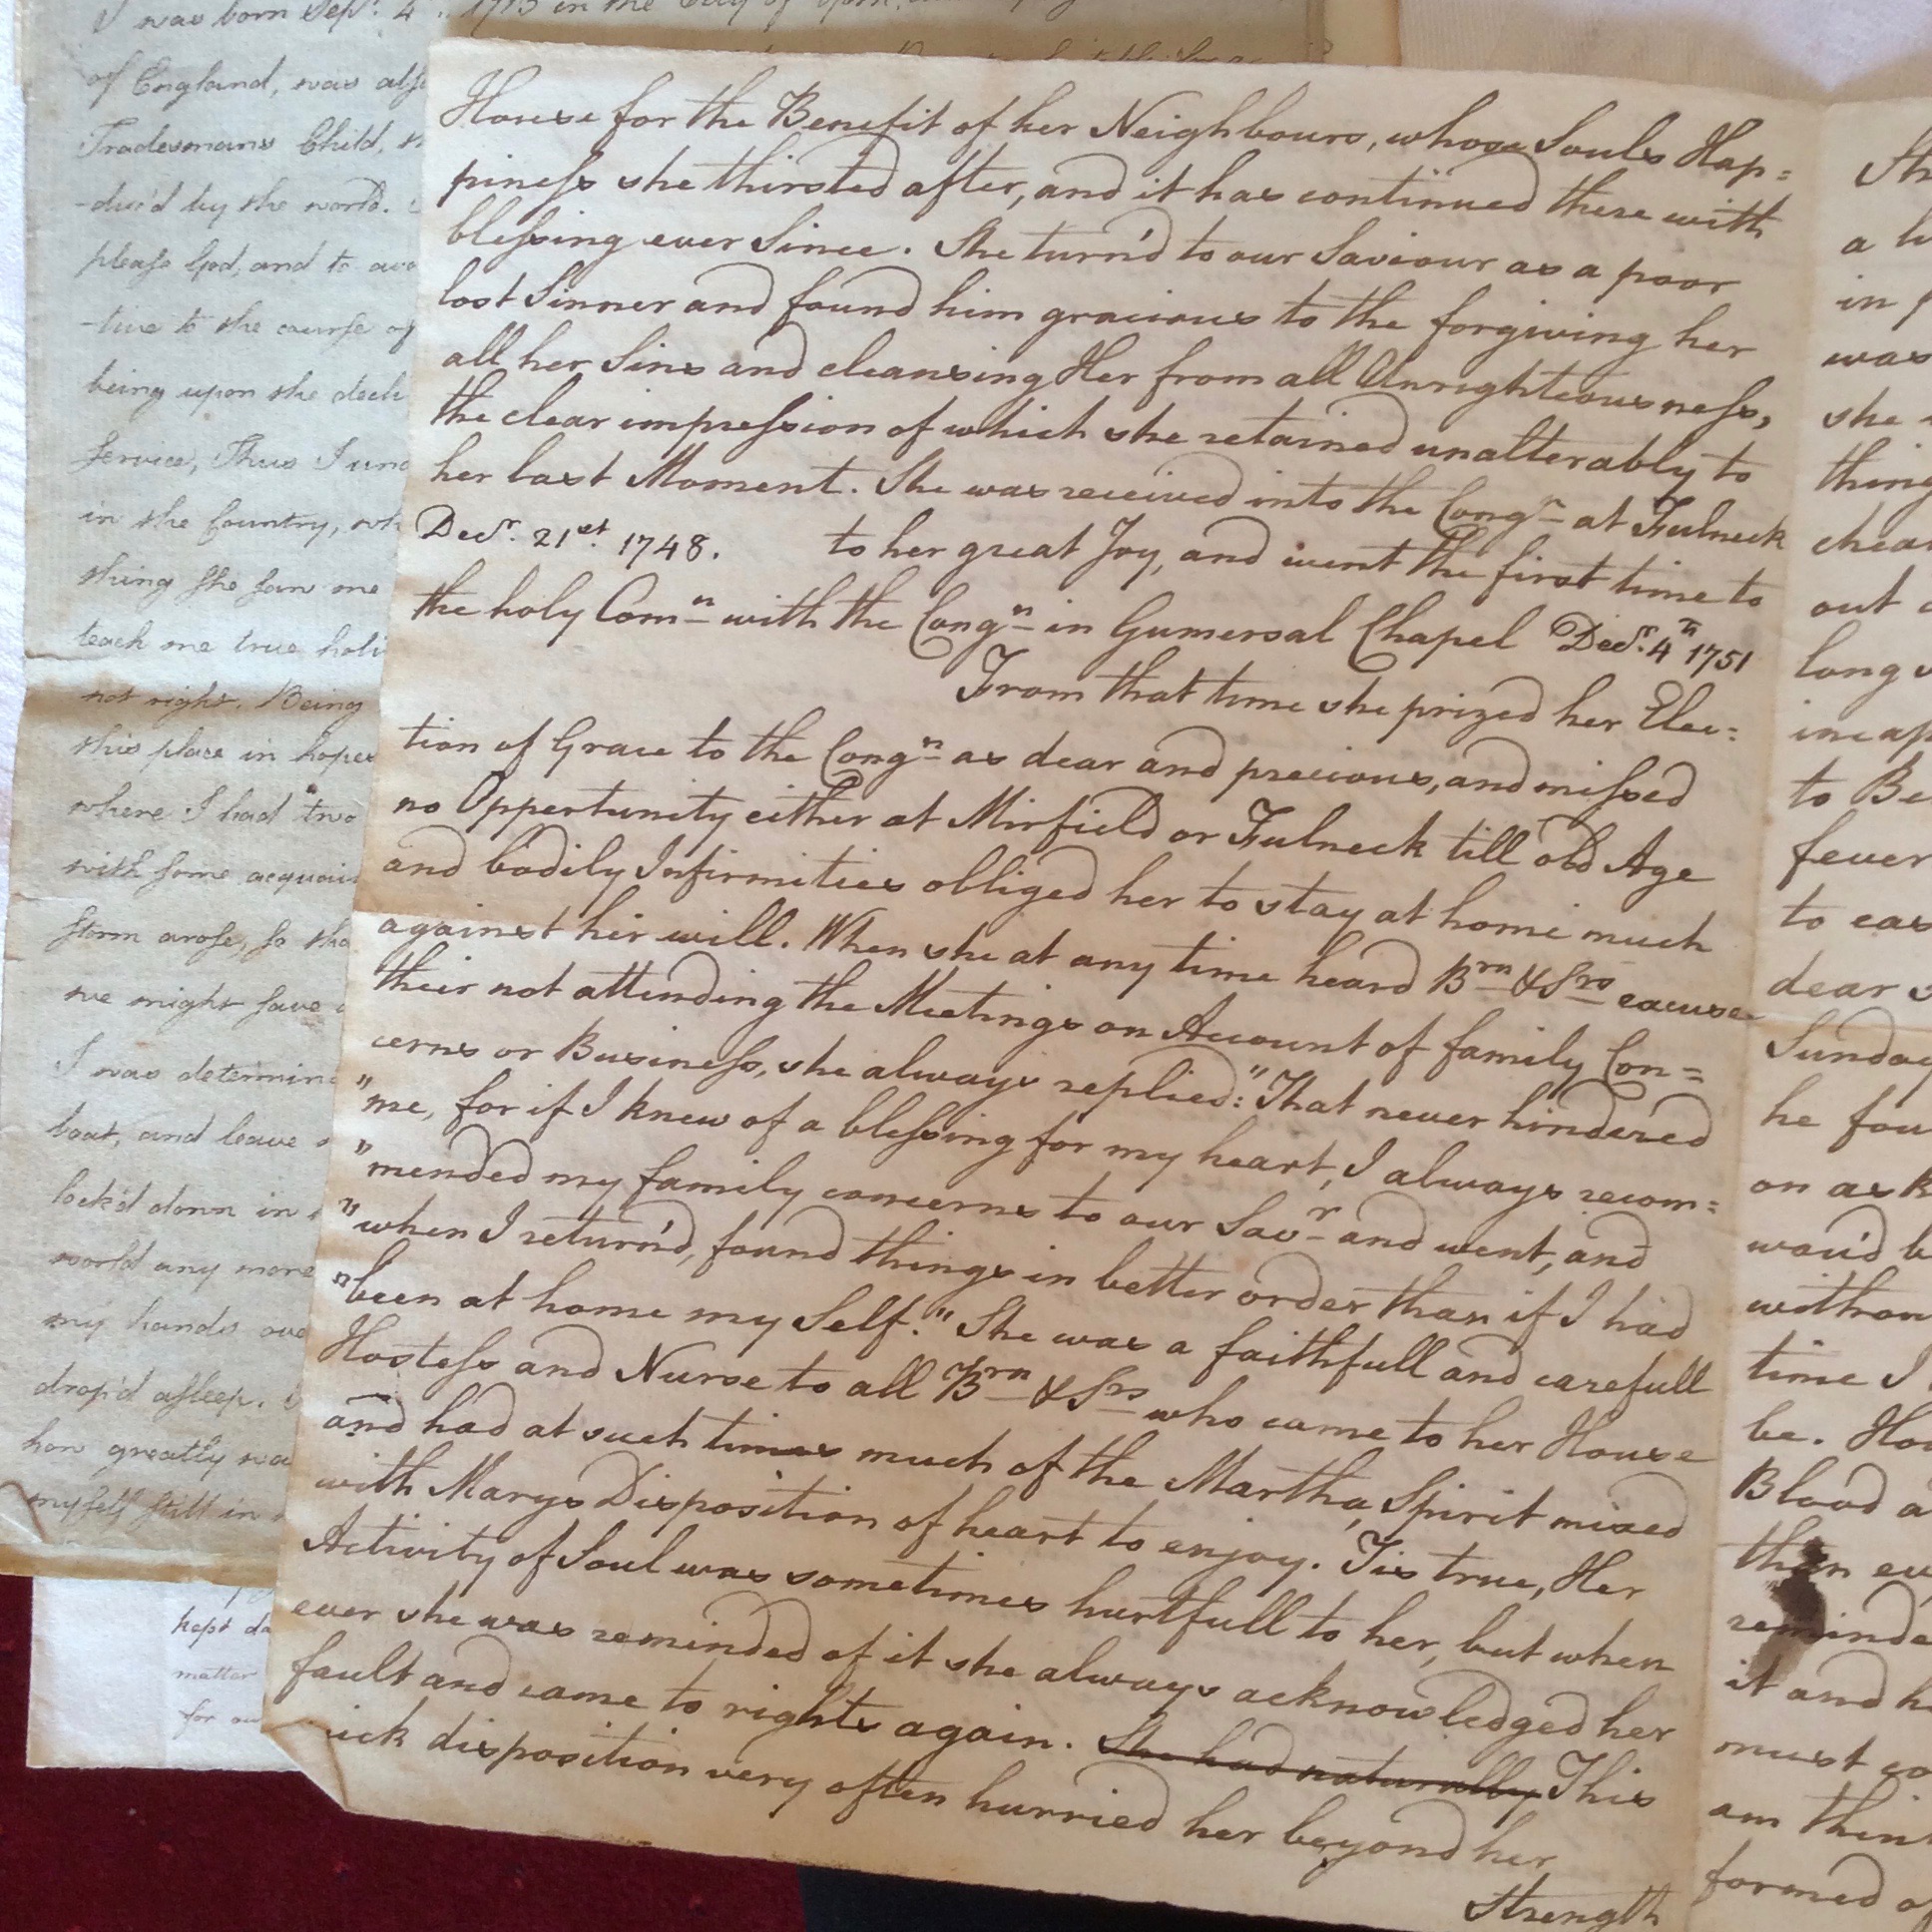 I was born Sepr. 4 1713 in the City of York,
of England, was
Tradesmans Child,
-du'd by the world.
please God, and to
-tive to the course of
being upon the
Service, Thus I
in the Country,
thing she saw me
teach me true
not right. Being
this place in hopes
where I had two
with some
storm arose, so
we might save
I was
boat, and leave
lock'd down in
world any more
my hands
drop'd asleep.
how greatly
myself still in
kept
matter
for
House for the Benefit of her Neighbours, whose Souls Hap=
piness she thirsted after, and it has continued there with
blessing ever Since. She turn'd to our Saviour as a poor
lost Sinner and found him gracious to the forgiving her
all her Sins and cleansing Her from all Unrighteousness,
the clear impression of which she retained unalterably to
her last Moment. She was received into the Congn at Fulneck
Decr. 21st. 1748. to her great Joy, and went the first time to
the holy Comn with the Congn in Gumersal Chapel Decr. 4th 1751
From that time she prized her Elec=
tion of Grace to the Congn as dear and precious, and missed
no Oppertunity either at Mirfield or Fulneck till old Age
and bodily Infirmities obliged her to stay at home much
against her will. When she at any time heard Brn & Srs excuse
their not attending the Meetings on Account of family Con=
cerns or Business, she always replied: "That never hindered
"me, for if I knew of a blessing for my heart, I always recom=
"mended my family concerns to our Savr and went, and
"when I return'd, found things in better order than if I had
"been at home my Self." She was a faithfull and carefull
Hostess and Nurse to all Brn & Srs who came to her House
and had at such times much of the Martha, Spirit mixed
with Marys Disposition of heart to enjoy. Tis true, Her
Activity of Soul was sometimes hurtfull to her, but when
ever she was reminded of it she always acknowledged her
fault and came to rights again. She had naturally This
ick disposition very often hurried her beyond her
Strength
a
in
was
she
thing
out
long
to
fever
to
dear
Sunday
he
on ask
wou'd
time I
be.
Blood
than
it and
must
am
formed